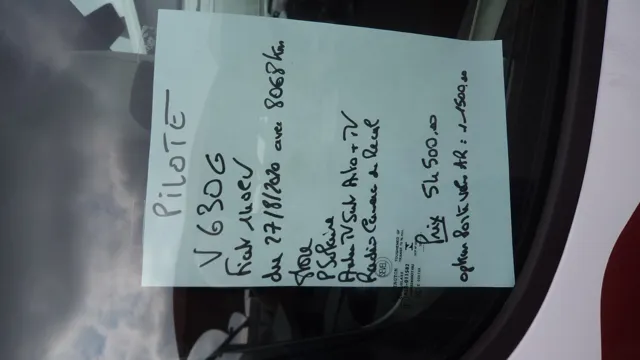 PILOTE
V 630G
Fiat 140CV
du 27/8/2020 avec 8068 km
Store
P Solaire
Ant TV Sat Auto + TV
Radio Camera de Recul
Prix 54 500,00
option Porte vélo AR : 1500,00